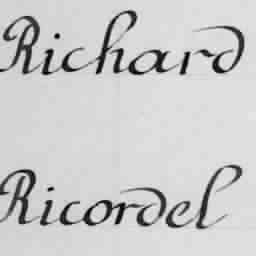 Richard
Ricordel